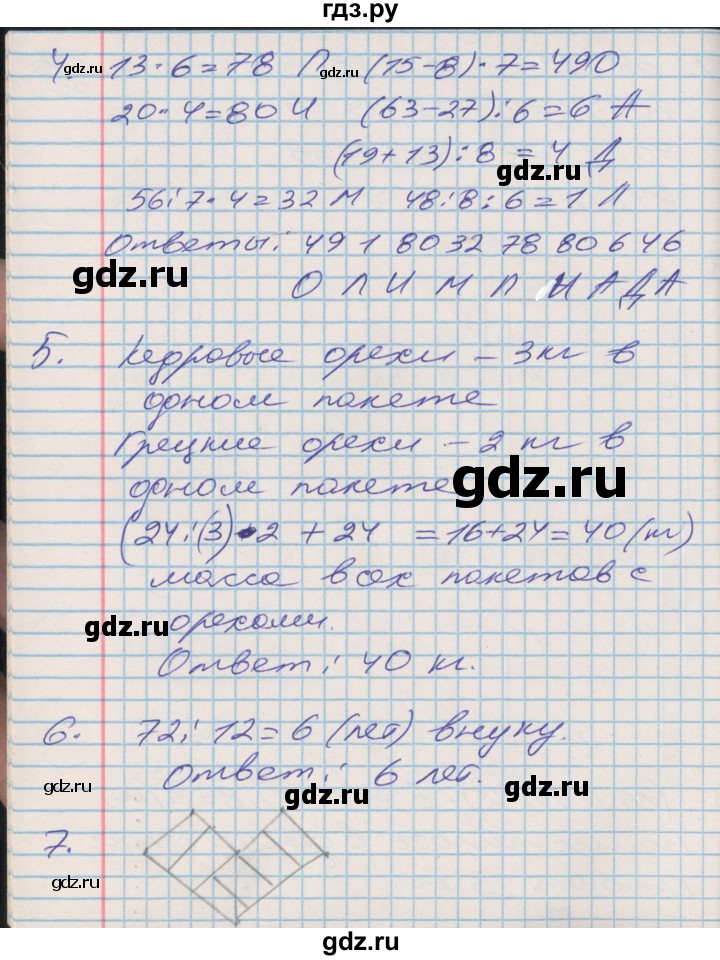 гдз.ру
4. 13·6=78 П (15-8)·7=49О
20·4=80 И (63-27):6=6 А
(19+13):8=4 Д
56:7·4=32 М 48:8:6=1 Л
Ответы: 49 1 80 32 78 80 6 4 6
О Л И М П И А Д А
5. Кедровые орехи – 3кг в
одном пакете
Грецкие орехи – 2 кг в
одном пакете
(24:(3)·2 + 24 =16+24=40 (кг)
масса всех пакетов с
орехами.
Ответ: 40 кг.
6. 72:12=6 (лет) внуку.
Ответ: 6 лет.
7.
gdz.ru
gdz.ru
gdz.ru
gdz.ru
gdz.ru
gdz.ru
gdz.ru
gdz.ru
gdz.ru
gdz.ru
gdz.ru